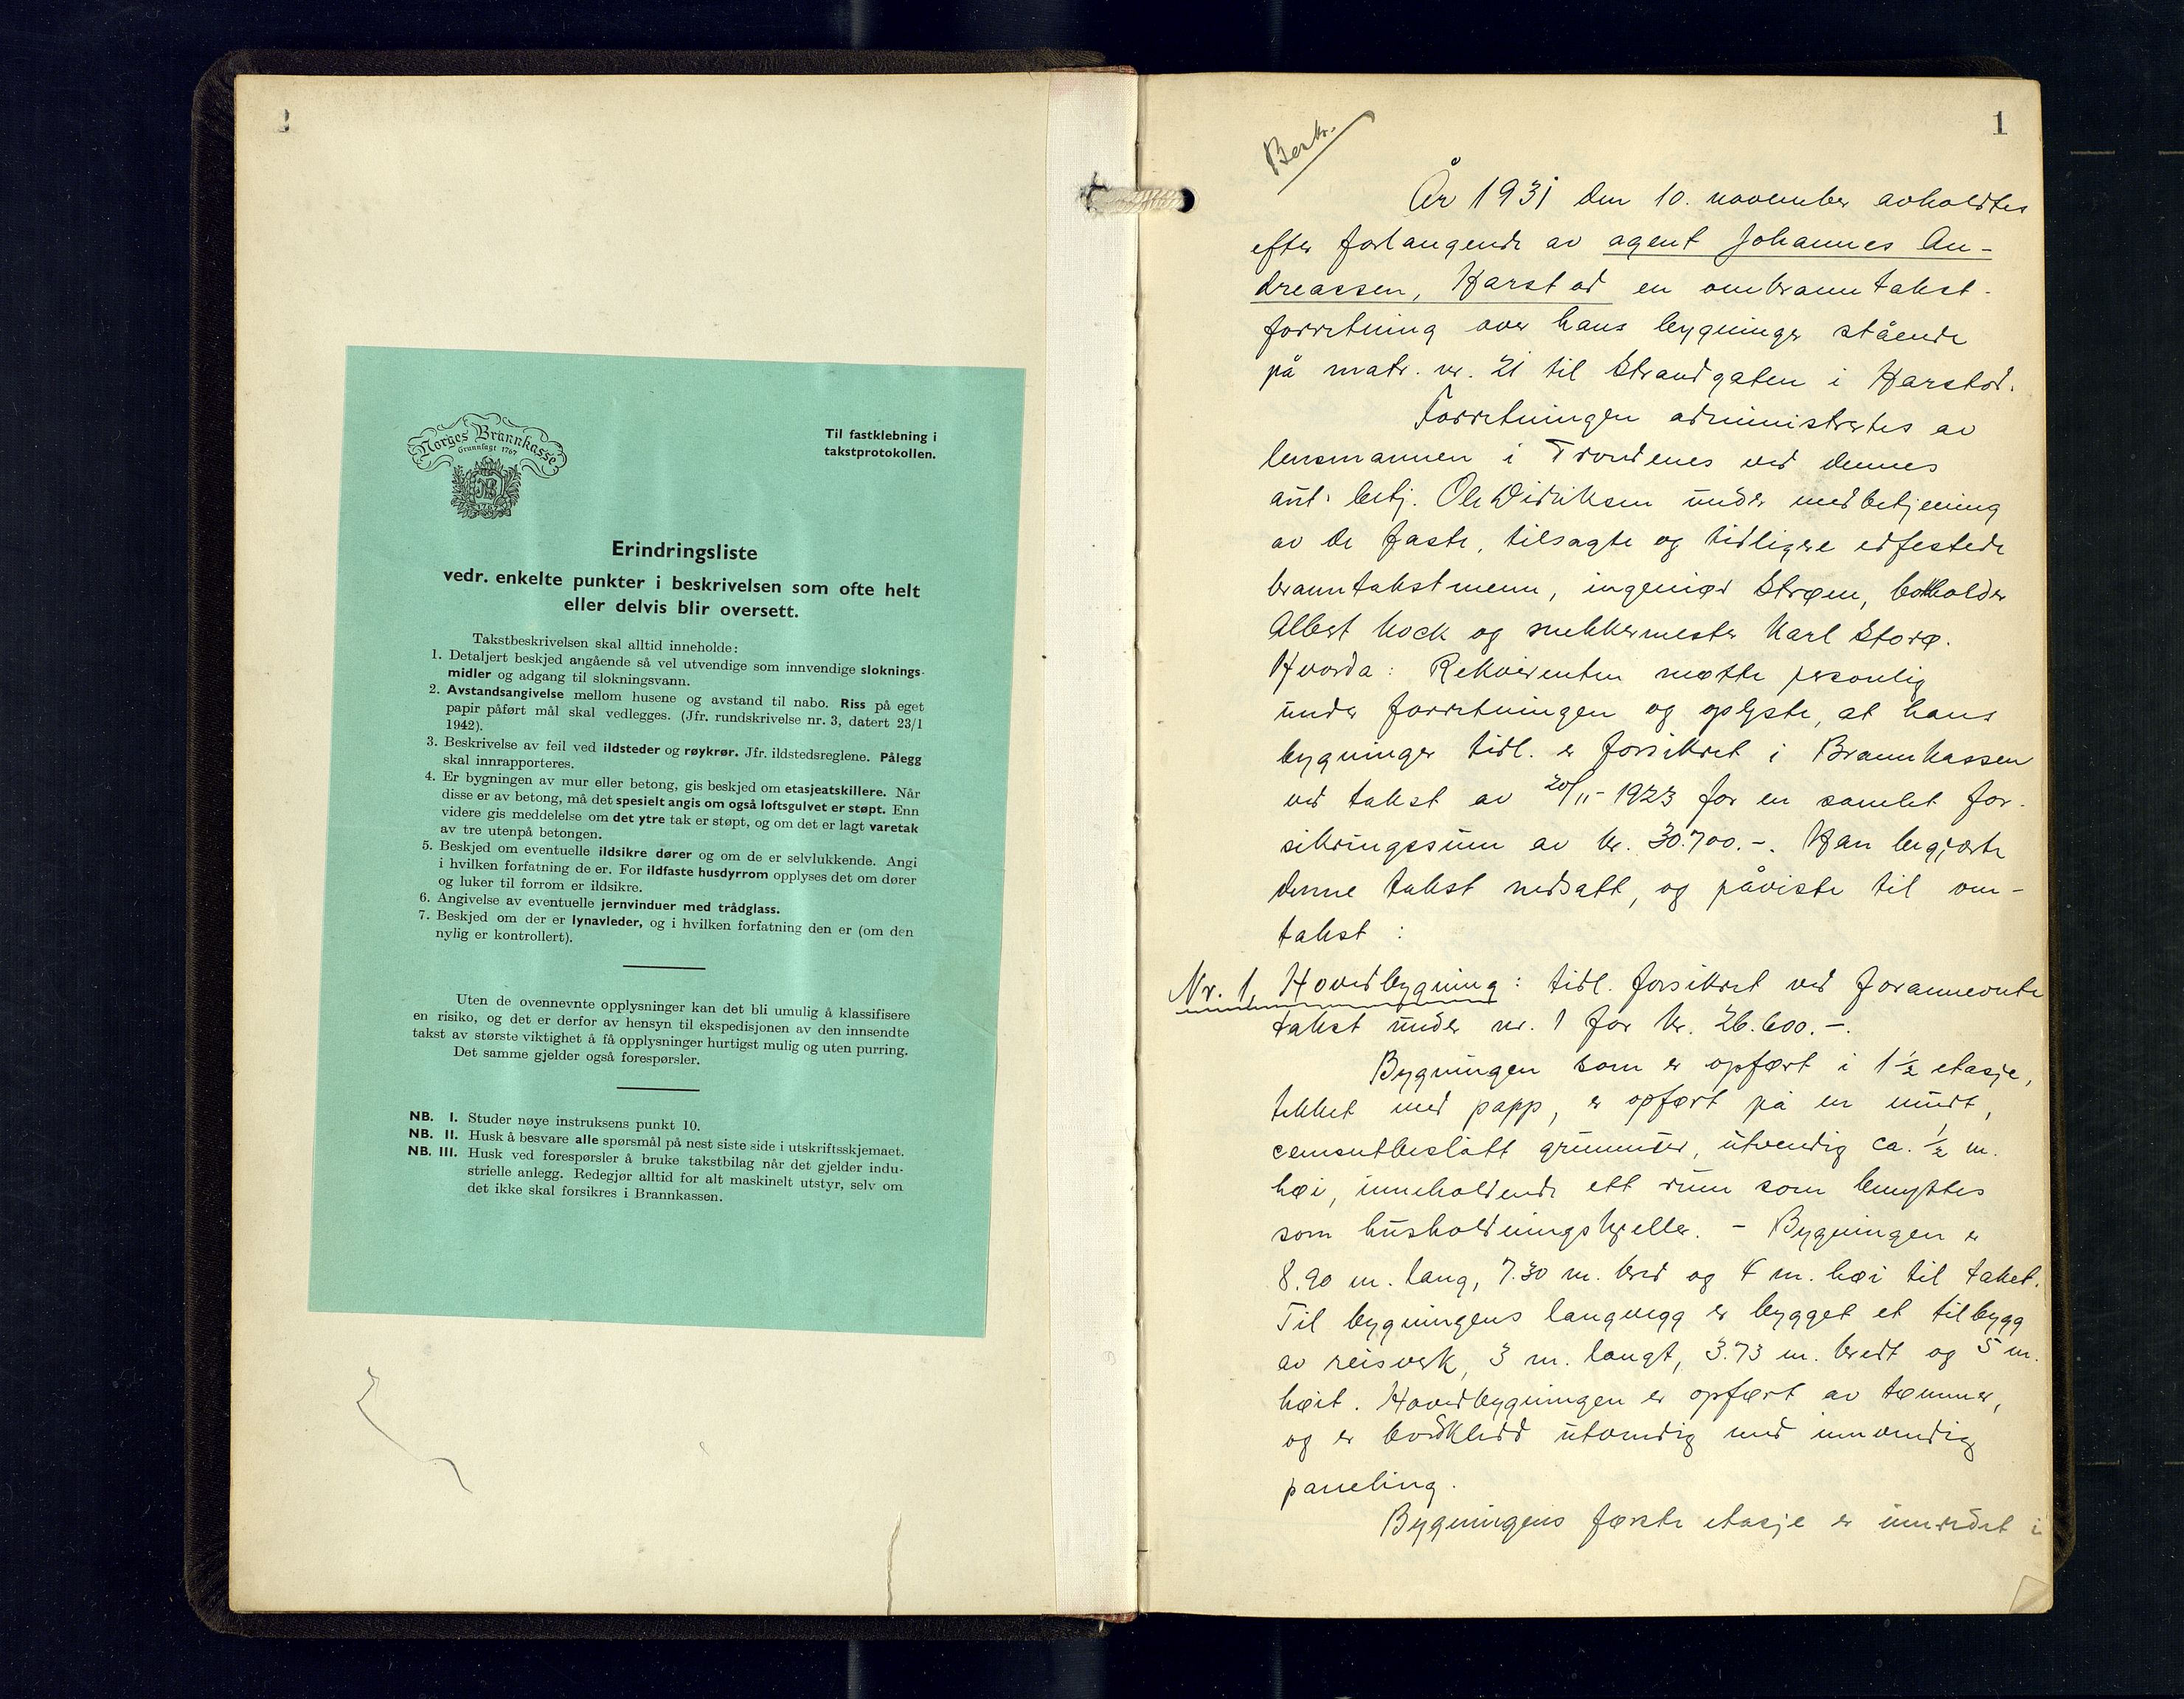 Norges Brannkasse
Grunnlagt 1767
Til fastklebning i
takstprotokollen.
Erindringsliste
vedr. enkelte punkter i beskrivelsen som ofte helt
eller delvis blir oversett.
Takstbeskrivelsen skal alltid inneholde:
1. Detaljert beskjed angående så vel utvendige som innvendige sloknings-
midler og adgang til slokningsvann.
2. Avstandsangivelse mellom husene og avstand til nabo. Riss på eget
papir påført mål skal vedlegges. (Jfr. rundskrivelse nr. 3, datert 23/1
1942).
3. Beskrivelse av feil ved ildsteder og røykrør. Jfr. ildstedsreglene. Pålegg
skal innrapporteres.
4. Er bygningen av mur eller betong, gis beskjed om etasjeatskillere. Når
disse er av betong, må det spesielt angis om også loftsgulvet er støpt. Enn
videre gis meddelelse om det ytre tak er støpt, og om det er lagt varetak
av tre utenpå betongen.
5. Beskjed om eventuelle ildsikre dører og om de er selvlukkende. Angi
i hvilken forfatning de er. For ildfaste husdyrrom opplyses det om dører
og luker til forrom er ildsikre.
6. Angivelse av eventuelle jernvinduer med trådglass.
7. Beskjed om der er lynavleder, og i hvilken forfatning den er (om den
nylig er kontrollert).
Uten de ovennevnte opplysninger kan det bli umulig å klassifisere
en risiko, og det er derfor av hensyn til ekspedisjonen av den innsendte
takst av største viktighet å få opplysninger hurtigst mulig og uten purring.
Det samme gjelder også forespørsler.
NB. I. Studer nøye instruksens punkt 10.
NB. II. Husk å besvare alle spørsmål på nest siste side i utskriftsskjemaet.
NB. III. Husk ved forespørsler å bruke takstbilag når det gjelder indu-
strielle anlegg. Redegjør alltid for alt maskinelt utstyr, selv om
det ikke skal forsikres i Brannkassen.
1
År 1931 den 10. november avholdtes
efter forlangende av agent Johannes An-
dreassen, Harstad en ombranntakst-
forretning over hans bygninger stående
på matr. nr. 21 til Strandgaten i Harstad.
Forretningen administrertes av
lensmannen i Trondenes ved dennes
aut. betj. Ole Didriksen under medbetjening
av de faste, tilsagte og tidligere edfestede
branntakstmenn, ingeniør Strøm, bokholder
Albert Kock og snekkermester Karl Storø.
Hvorda: Rekvirenten møtte personlig
under forretningen og oplyste, at hans
bygninger tidl. er forsikret i Brannkassen
ved takst av 20/11-1923 for en samlet for-
sikringssum av kr. 30.700.-. Han begjærte
denne takst nedsatt, og påviste til om-
takst:
Nr. 1. Hovedbygning: tidl. forsikret ved forannevnte
takst under nr. 1 for kr. 26.600.-.
Bygningen som er opført i 1½ etasje,
tekket med papp, er opført på en murt,
cementbeslått grunnmur, utvendig ca. ½ m.
høi, inneholdende ett rum som benyttes
som husholdningskjeller. - Bygningen er
8.90 m. lang, 7.30 m. bred og 4 m. høi til taket.
Til bygningens langvegg er bygget et tilbygg
av reisverk, 3 m. langt, 3.73 m. bredt og 5 m.
høit. Hovedbygningen er opført av tømmer,
og er bordkledd utvendig med innvendig
paneling.
Bygningens første etasje er innredet i